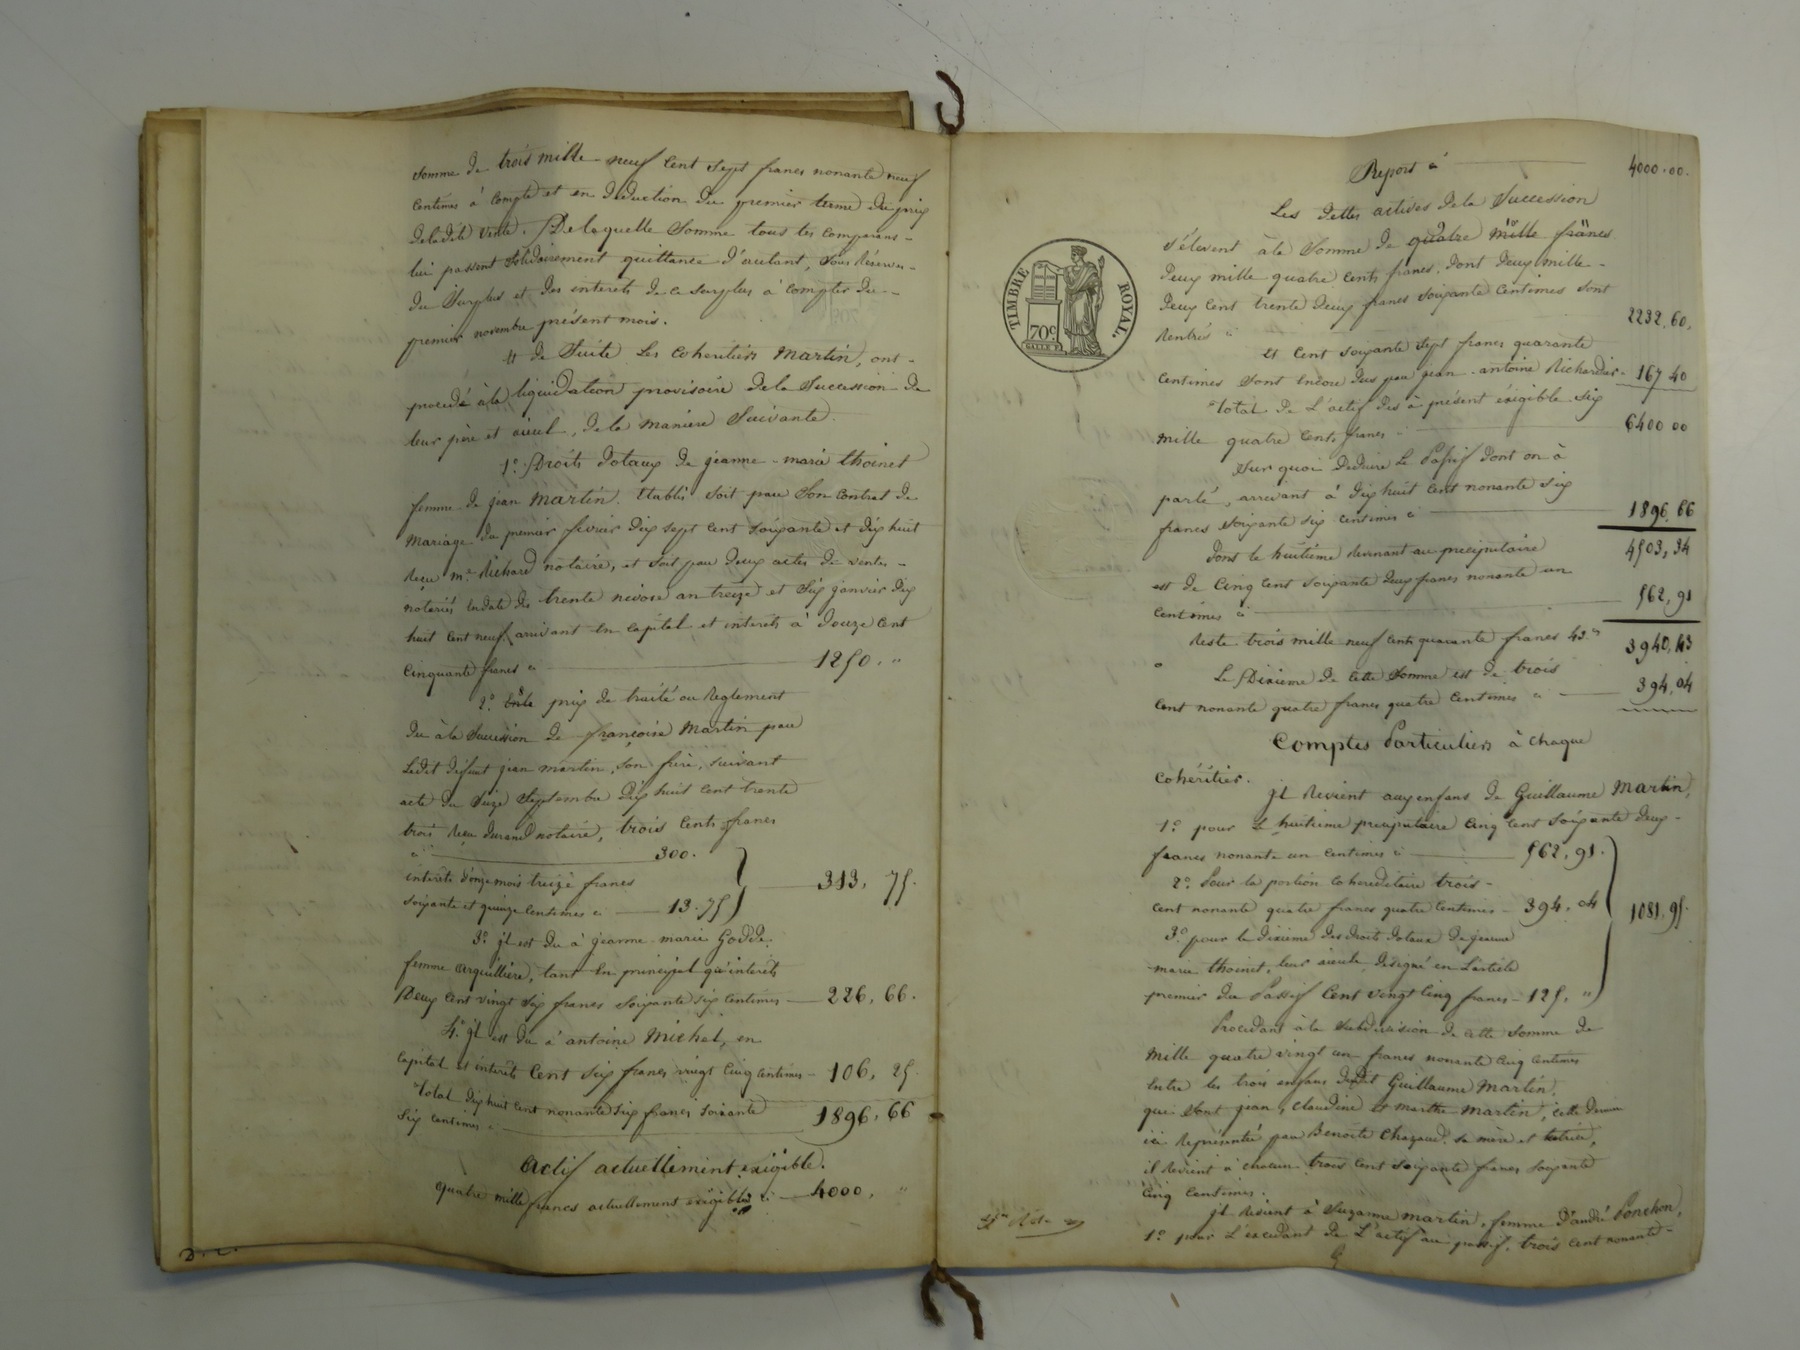 somme de trois mille neuf cent sept francs nonante neuf
centimes à compte et en déduction du premier terme du prix
de ladite vente. De laquelle somme tous les comparans
lui passent solidairement quittance d'autant, sous réserve
du surplus et des interets de ce surplus à compter du
premier novembre présent mois.
Et de suite les cohéritiers Martin, ont
procédé à la liquidation provisoire de la succession de
leur père et aieul, de la manière suivante.
1° Droits dotaux de jeanne marie thoinet
femme de jean Martin. Etablis soit par son contrat de
mariage du premier fevrier dix sept cent soixante et dix huit
reçu me. Richard notaire, et soit par deux actes de ventes
notariés en date des trente nivose an treize et six janvier dix
huit cent neuf, arrivant en capital et interets à douze cent
cinquante francs ci 1250. "
2° prix de traité ou reglement
du à la succession de françoise Martin par
ledit défunt jean martin, son frere, suivant
acte du seize septembre dix huit cent trente
trois reçu durand notaire, trois cents francs
ci 300.
interets d'onze mois treize francs
soixante et quinze centimes ci 13.75 313, 75.
3° il est du à jeanne marie Godde
femme arquillière, tant en principal qu'interets
Deux cent vingt six francs soixante six centimes 226, 66.
4° il est du à antoine Michel, en
capital et interets cent six francs vingt cinq centimes 106, 25.
Total dix huit cent nonante six francs soixante
six centimes ci 1896, 66
Actif actuellement exigible.
quatre mille francs actuellement exigibles ci 4000, "
D. L.
Report ci 4000.00.
TIMBRE ROYAL.
70c
Les dettes actives de la succession
s'élevent à la somme de quatre mille francs
deux mille quatre cents francs, dont deux mille
deux cent trente deux francs soixante centimes sont
rentrés ci 2232,60.
Et cent soixante sept francs quarante
centimes sont encore dus par jean antoine Richardier 167 40
Total de L'actif dès à présent éxigible six
mille quatre cents francs 6400 00
Sur quoi déduire Le Passif dont on à
parlé, arrivant à dix huit cent nonante six
francs soixante six centimes ci 1896,66
4503,34
Dont le huitième revenant au preciputaire
est de cinq cent soixante deux francs nonante un
centimes ci 562,91
Reste trois mille neuf cent quarante francs 43 c 3940,43
Le Dixieme de cette somme est de trois
cent nonante quatre francs quatre centimes ci 394,04
Comptes Particuliers à chaque
cohéritier.
jl revient aux enfans de Guillaume Martin,
1° pour le huitieme preciputaire cinq cent soixante deux
francs nonante un centimes ci 562,91.
2° Pour la portion cohereditaire trois
cent nonante quatre francs quatre centimes 394,04 1081,95.
3° pour le dixieme des droits dotaux de jeanne
marie thoinet, leur aieule, designé en l'article
premier du Passif cent vingt cinq francs 125, "
Procedant à la subdivision de cette somme de
mille quatre vingt un francs nonante cinq centimes
entre les trois enfans dudit Guillaume Martin,
qui sont jean, claudine et marthe martin, cette derniere
ici représentée par Benoite Chazaud. sa mère et tutrice,
il revient à chacun trois cent soixante francs soixante
cinq centimes.
jl revient à suzanne martin, femme d'andré Ponchon,
1° pour L'excedant de L'actif au passif, trois cent nonante